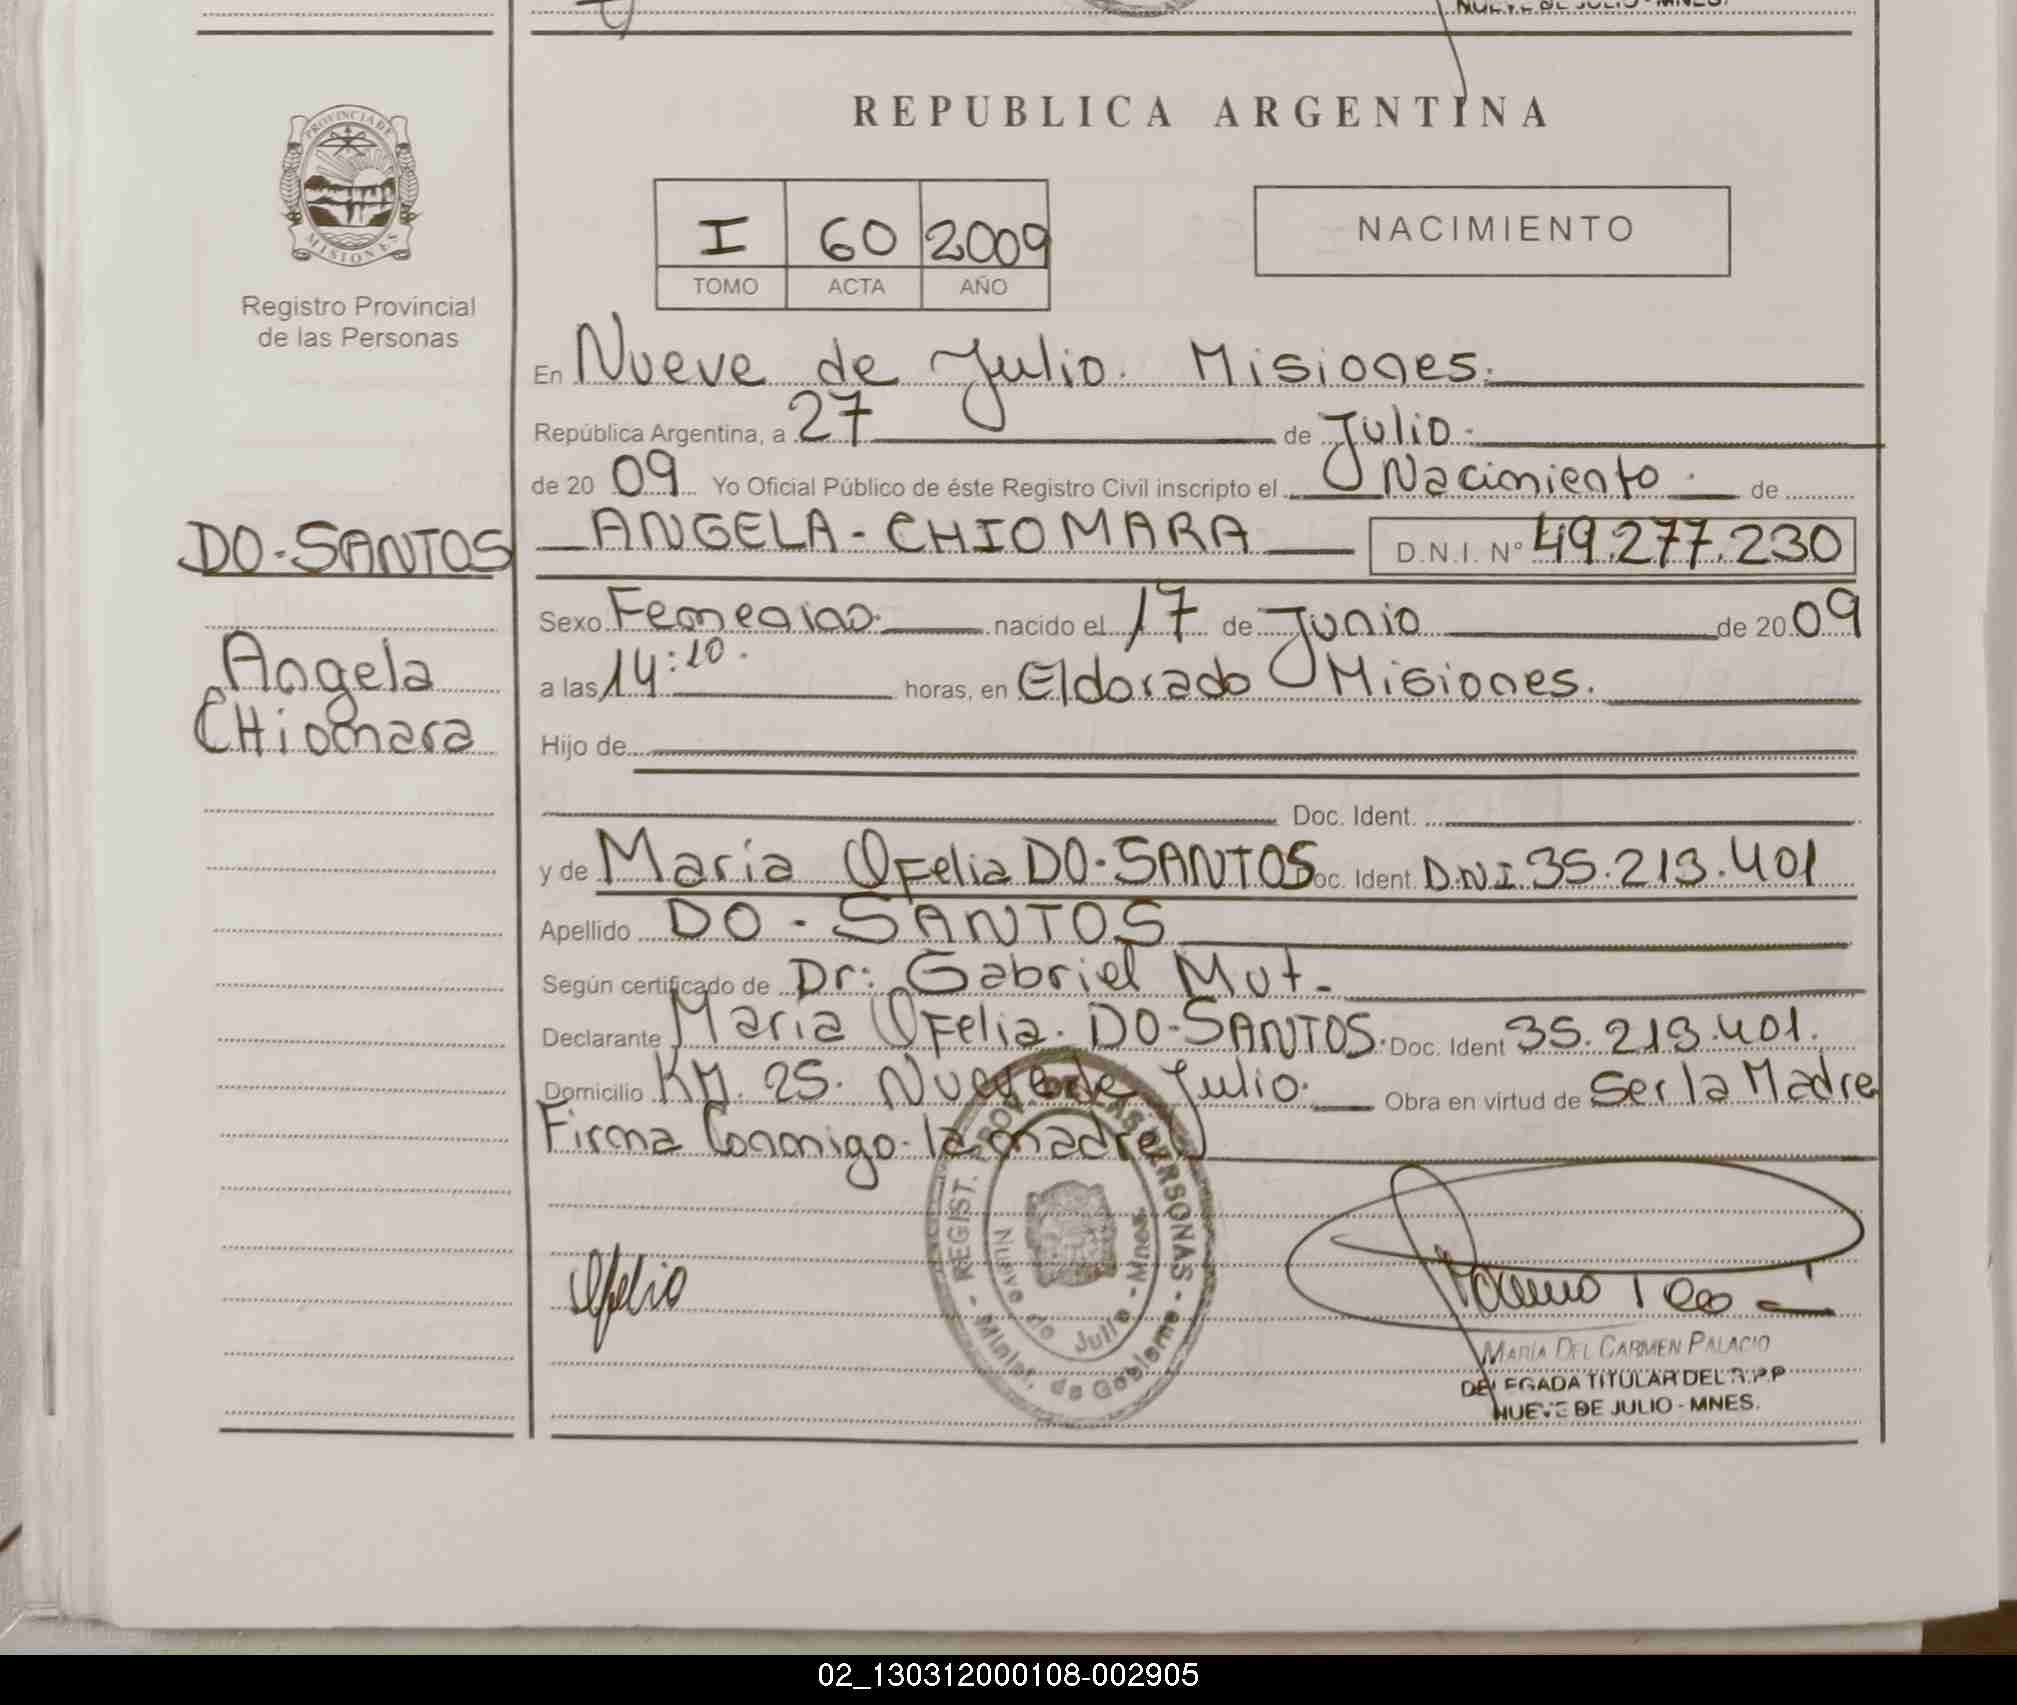 NUEVE DE JULIO - MNES.
REPUBLICA ARGENTINA
PROVINCIA DE
MISIONES
Registro Provincial
de las Personas
I 60 2009
TOMO ACTA AÑO
NACIMIENTO
En Nueve de Julio. Misiones.
República Argentina, a 27 de Julio.
de 20 09 Yo Oficial Público de éste Registro Civil inscripto el Nacimiento. de
DO-SANTOS
ANGELA - CHIOMARA D.N.I. N° 49.277.230
Sexo Femenino. nacido el 17 de Junio de 20 09
Angela
CHiomara
a las 14:10. horas, en Eldorado Misiones.
Hijo de
Doc. Ident.
y de Maria OFelia DO-SANTOS Doc. Ident. D.N.I. 35.213.401
Apellido DO-SANTOS
Según certificado de Dr: Gabriel Mut.
Declarante Maria OFelia. DO-SANTOS. Doc. Ident 35.213.401.
Domicilio KM. 25. Nueve de Julio. Obra en virtud de Ser la Madre
Firma Conmigo la madre
REGIST. PROV. DE LAS PERSONAS - Minist. de Gobierno -
Nueve de Julio - Mnes.
Ofelia
MARIA DEL CARMEN PALACIO
DELEGADA TITULAR DEL R.P.P
NUEVE DE JULIO - MNES.
02_130312000108-002905